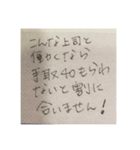 こんな上司と
働くなら
手取40もらわ
ないと割に
合いません!